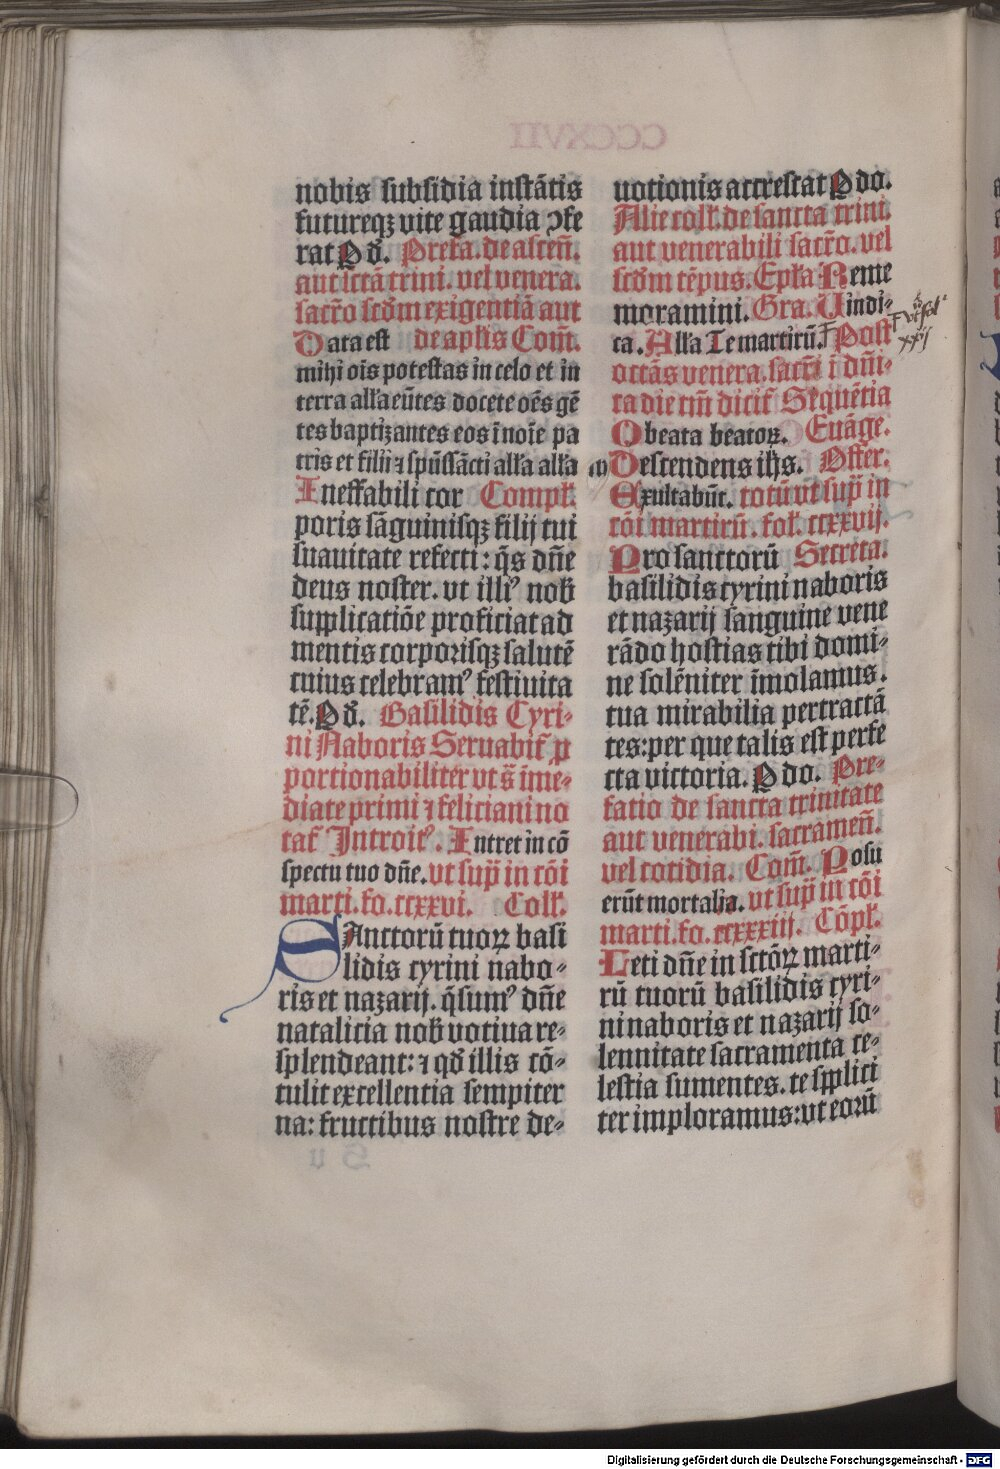 nobis subsidia instātis
futureqȝ vite gaudia ↄfe
rat P d̄. Prefa. de ascen̄.
aut sctā trini. vel venera.
sacrō scd̄m exigentiā aut
de apl̄is Com̄.
Data est
mihi oīs potestas in celo et in
terra all'a eūtes docete oēs gē
tes baptizantes eos ī noīe pa
tris et filii ⁊ spūssācti all'a all'a
Ineffabili cor Compl'.
poris sāguinisqȝ filij tui
suauitate refecti: q̄s dn̄e
deus noster. vt illiꝰ nob̄
supplicatiōe proficiat ad
mentis corporisqȝ salutē
cuius celebramꝰ festiuita
tē. P d̄. Basilidis Cyri-
ni Naboris Seruabit̄ p
portionabiliter vt s̄ ime-
diate primi ⁊ feliciani no
tat̄ Introitꝰ. Intret in cō
spectu tuo dn̄e. vt sup̄ in cōi
marti. fo. ccxxvi. Coll'.
SAnctorū tuoꝝ basi
lidis cyrini nabo-
ris et nazarij. q̄sumꝰ dn̄e
natalicia nob̄ votiua re-
splendeant: ⁊ qd̄ illis cō-
tulit excellentia sempiter
na: fructibus nostre de-
uotionis accrescat P do.
Alie coll'. de sancta trini.
aut venerabili sacrō. vel
scd̄m tēpus. Ep̄la Reme
moramini. Gra. Uindi-
ca. All'a Te martirū. Post
xxij
octās venera. sacrī i dn̄i-
ca die tm̄ dicit̄ Sequētia
O beata beatoꝝ. Euāge.
Descendens ihs. Offer.
Exultabūt. totū vt sup̄ in
cōi martirū. fol'. ccxxvij.
Pro sanctorū Secreta.
basilidis cyrini naboris
et nazarij sanguine vene
rādo hostias tibi domi-
ne solēniter īmolamus.
tua mirabilia pertractā
tes: per que talis est perfe
cta victoria. P do. Pre-
fatio de sancta trinitate
aut venerabi. sacramen̄.
vel cotidia. Com̄. Posu
erūt mortalia. vt sup̄ in cōi
marti. fo. ccxxxiij. Cōpl'.
Leti dn̄e in sctōꝝ marti-
rū tuorū basilidis cyri-
ni naboris et nazarij so-
lennitate sacramenta ce-
lestia sumentes. te spplici
ter imploramus: vt eorū
Digitalisierung gefördert durch die Deutsche Forschungsgemeinschaft - DFG